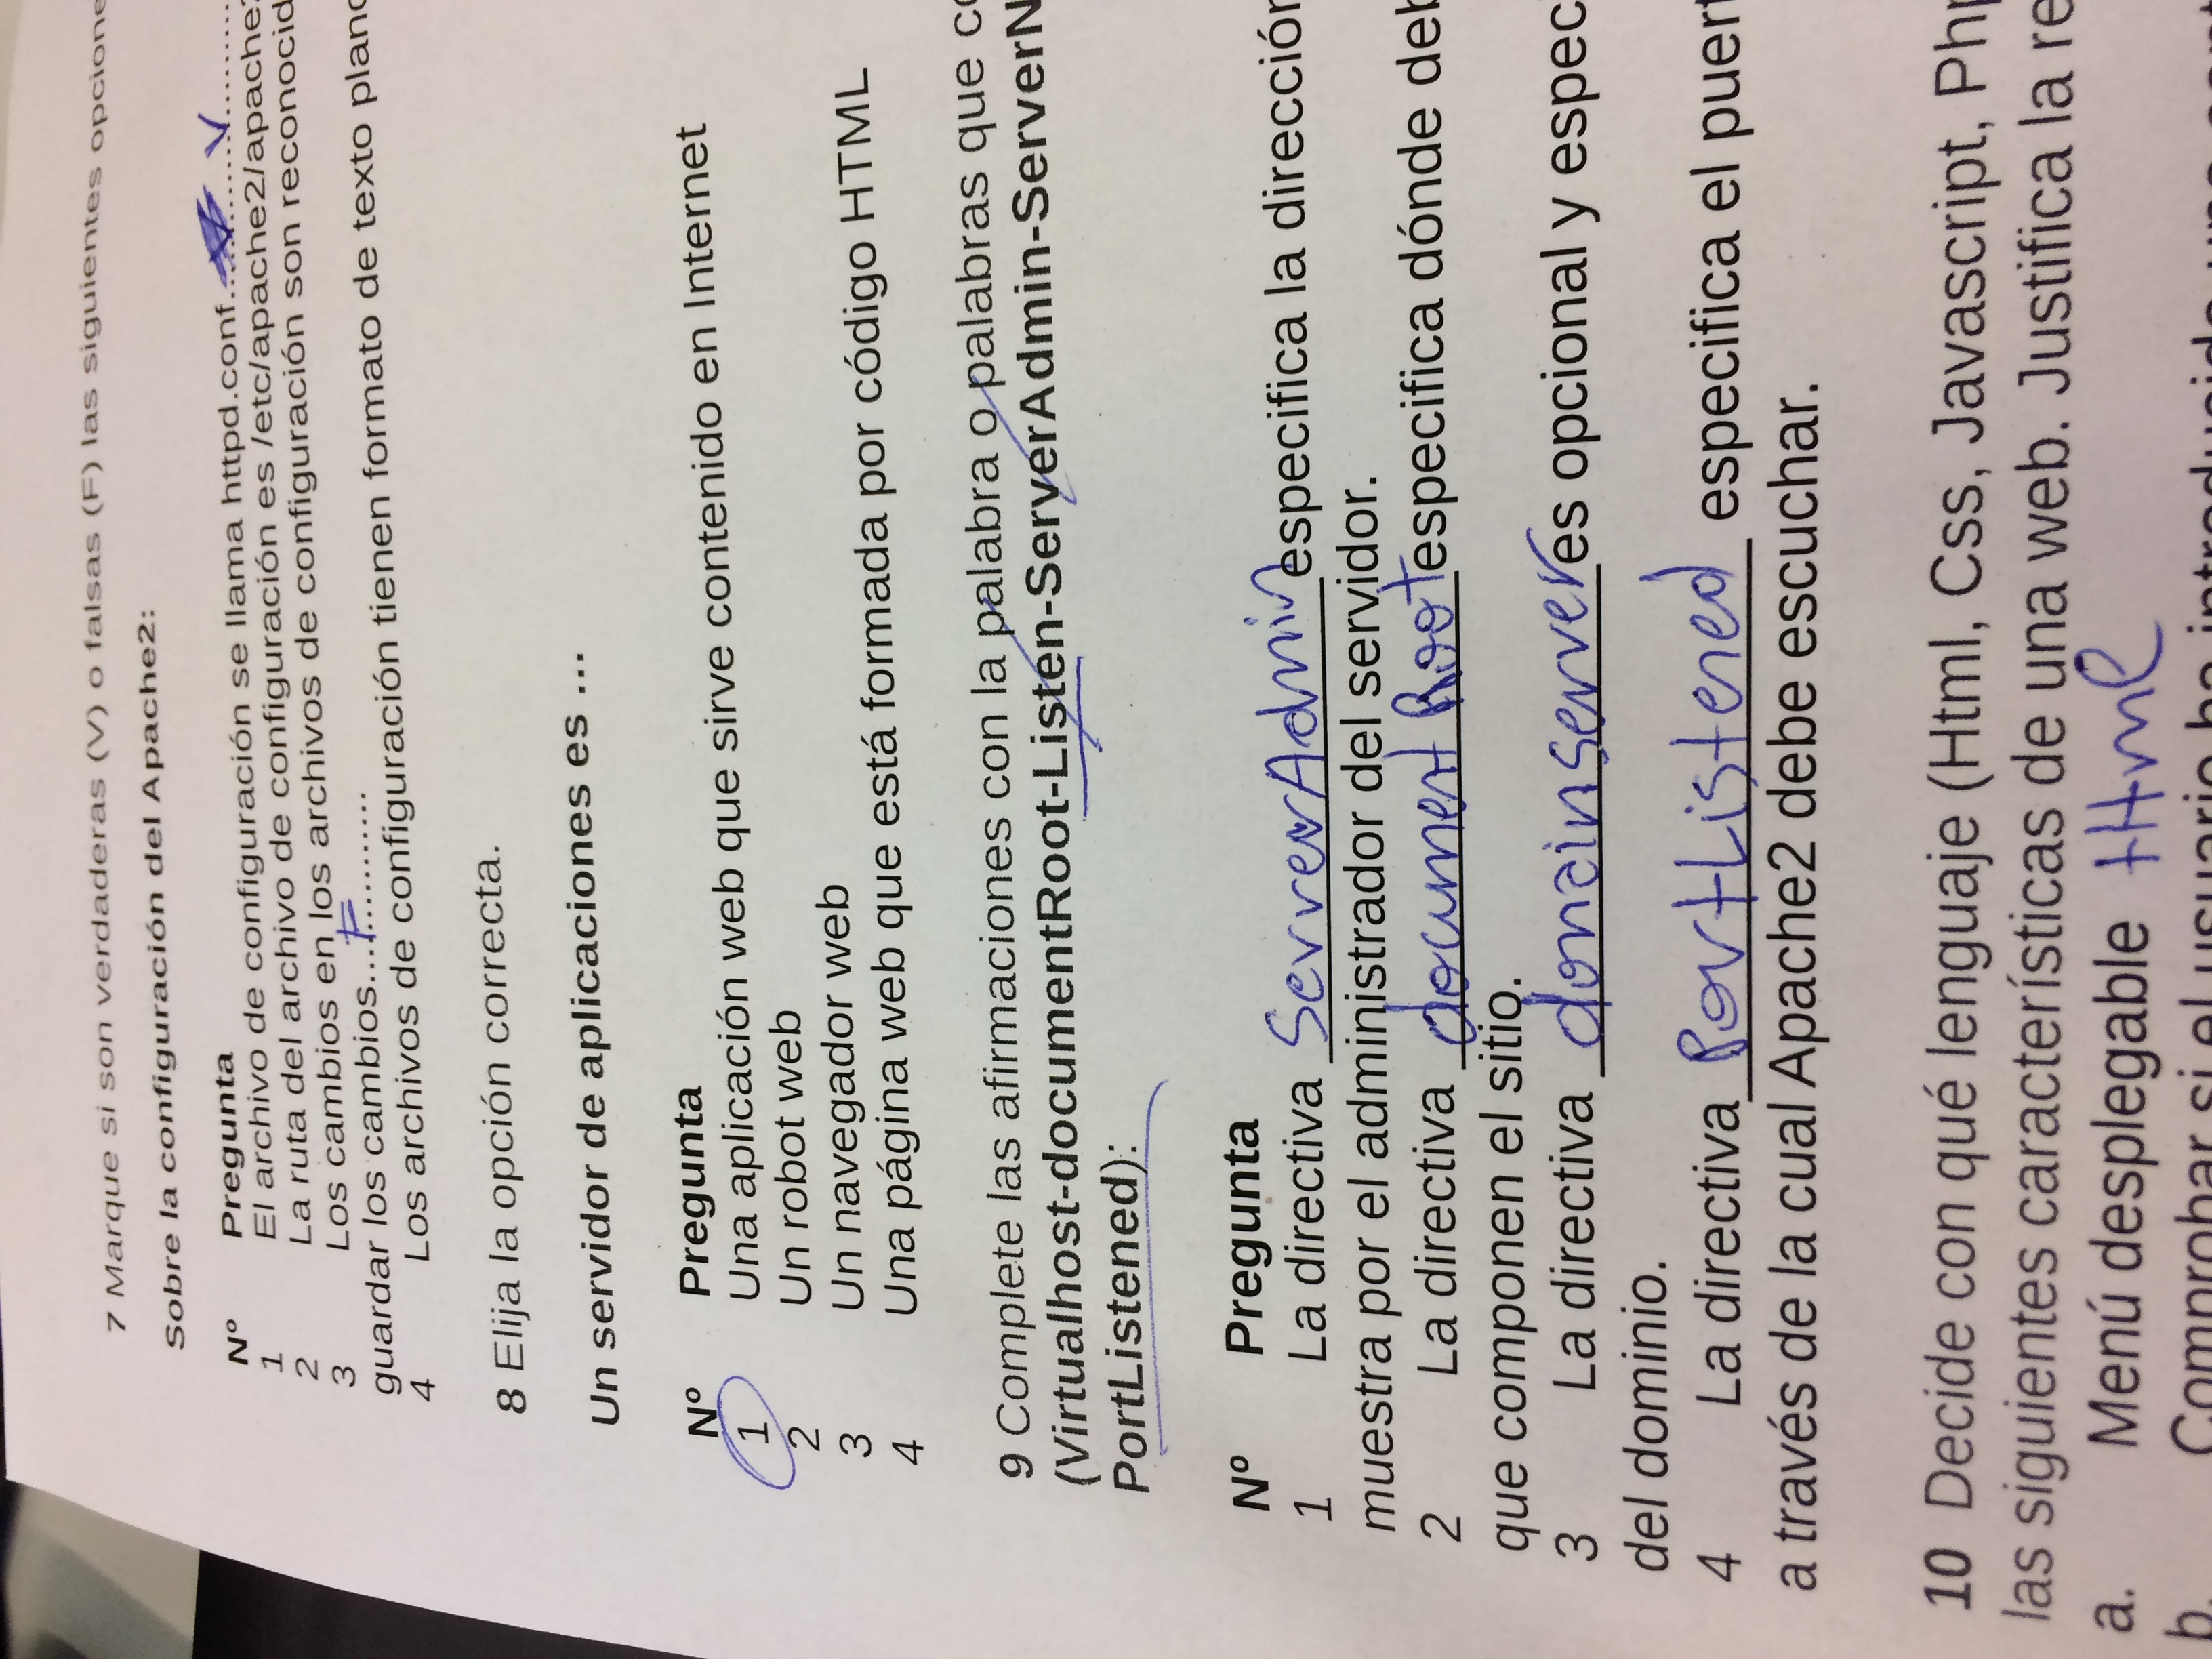 7 Marque si son verdaderas (V) o falsas (F) las siguientes opcione
Sobre la configuración del Apache2:
Nº Pregunta
1 El archivo de configuración se llama httpd.conf........V............
2 La ruta del archivo de configuración es /etc/apache2/apache
3 Los cambios en los archivos de configuración son reconocid
guardar los cambios....F...........
4 Los archivos de configuración tienen formato de texto plano
8 Elija la opción correcta.
Un servidor de aplicaciones es ...
Nº Pregunta
1 Una aplicación web que sirve contenido en Internet
2 Un robot web
3 Un navegador web
4 Una página web que está formada por código HTML
9 Complete las afirmaciones con la palabra o palabras que co
(Virtualhost-documentRoot-Listen-ServerAdmin-ServerN
PortListened):
Nº Pregunta
1 La directiva ServerAdmin especifica la dirección
muestra por el administrador del servidor.
2 La directiva document Root especifica dónde deb
que componen el sitio.
3 La directiva domainserver es opcional y espec
del dominio.
4 La directiva PortListened especifica el puert
a través de la cual Apache2 debe escuchar.
10 Decide con qué lenguaje (Html, Css, Javascript, Php
las siguientes características de una web. Justifica la re
a. Menú desplegable Html
b. Comprobar si el usuario ha introducido una cont